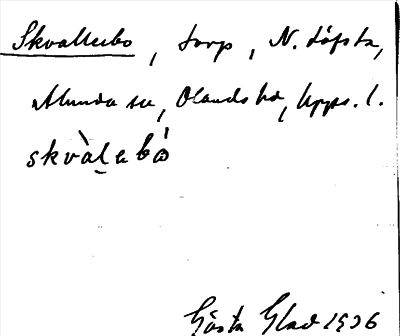 Skvallerbo, torp, N. Löfsta,
Alunda sn, Olands hd, Upps. l.
skvàl̠ebó
Gösta Glad 1936